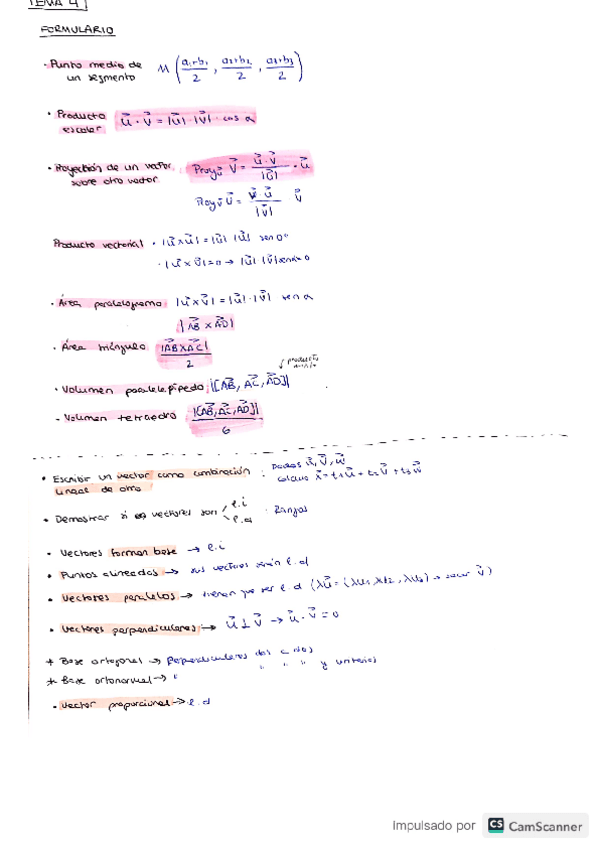 TEMA 4
FORMULARIO
· Punto medio de un segmento M (a₁+b₁/2, a₂+b₂/2, a₃+b₃/2)
· Producto escalar u⃗ · v⃗ = |u⃗| · |v⃗| · cos α
· Proyección de un vector sobre otro vector Proy u⃗ v⃗ = u⃗ · v⃗ / |u⃗| · u⃗
Proy v⃗ u⃗ = v⃗ · u⃗ / |v⃗| v⃗
Producto vectorial · |u⃗ x u⃗| = |u⃗| |u⃗| sen 0º
· |u⃗ x v⃗| = 0 → |u⃗| |v⃗| sen α = 0
· Área paralelogramo |u⃗ x v⃗| = |u⃗| · |v⃗| sen α
|AB⃗ x AD⃗|
· Área triángulo |AB⃗ x AC⃗| / 2
producto
· Volumen paralelepípedo |[AB⃗, AC⃗, AD⃗]|
- Volumen tetraedro |[AB⃗, AC⃗, AD⃗]| / 6
· Escribir un vector como combinación lineal de otro : Dados u⃗, v⃗, w⃗
x⃗ = t₁u⃗ + t₂v⃗ + t₃w⃗
· Demostrar si vectores son l.i / l.d · Rangos
· Vectores forman base → l.i
· Puntos alineados → sus vectores serán l.d
· Vectores paralelos → tienen que ser l.d (λu⃗ = (λu₁, λu₂, λu₃) → sacar v⃗)
· Vectores perpendiculares → u⃗ ⊥ v⃗ → u⃗ · v⃗ = 0
* Base ortogonal → perpendiculares dos a dos
* Base ortonormal → " " " " y unitarios
· Vector proporcional → l.d
Impulsado por CS CamScanner